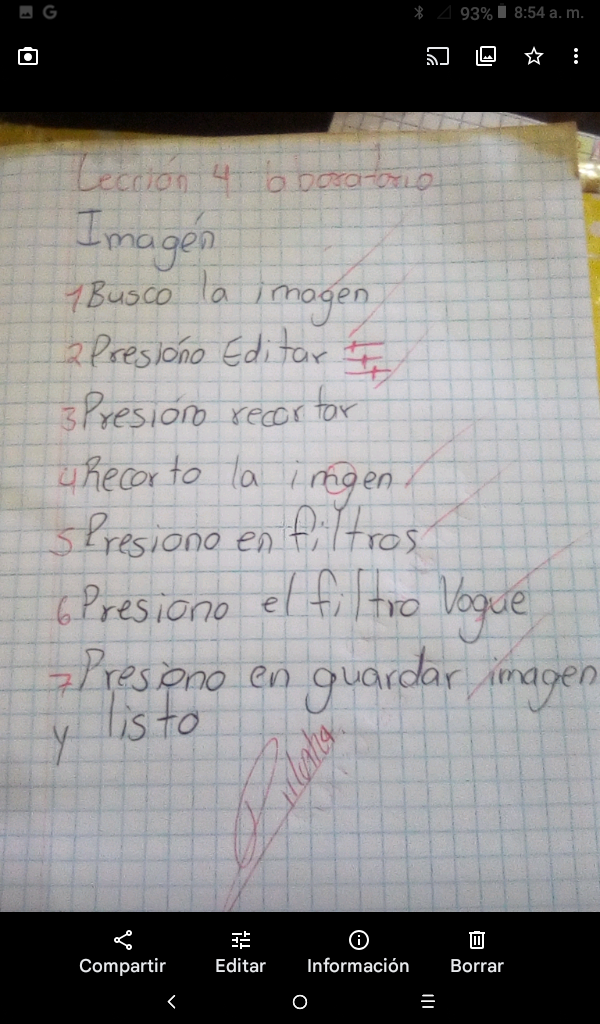 93% 8:54 a. m.
Lección 4 laboratorio
Imagén
1 Busco la imagen
2 Presióno Editar
3 Presióno recortar
4 Recorto la imgen
5 Presiono en filtros
6 Presiono el filtro Vogue
7 Presiono en guardar imagen
y listo
Compartir Editar Información Borrar